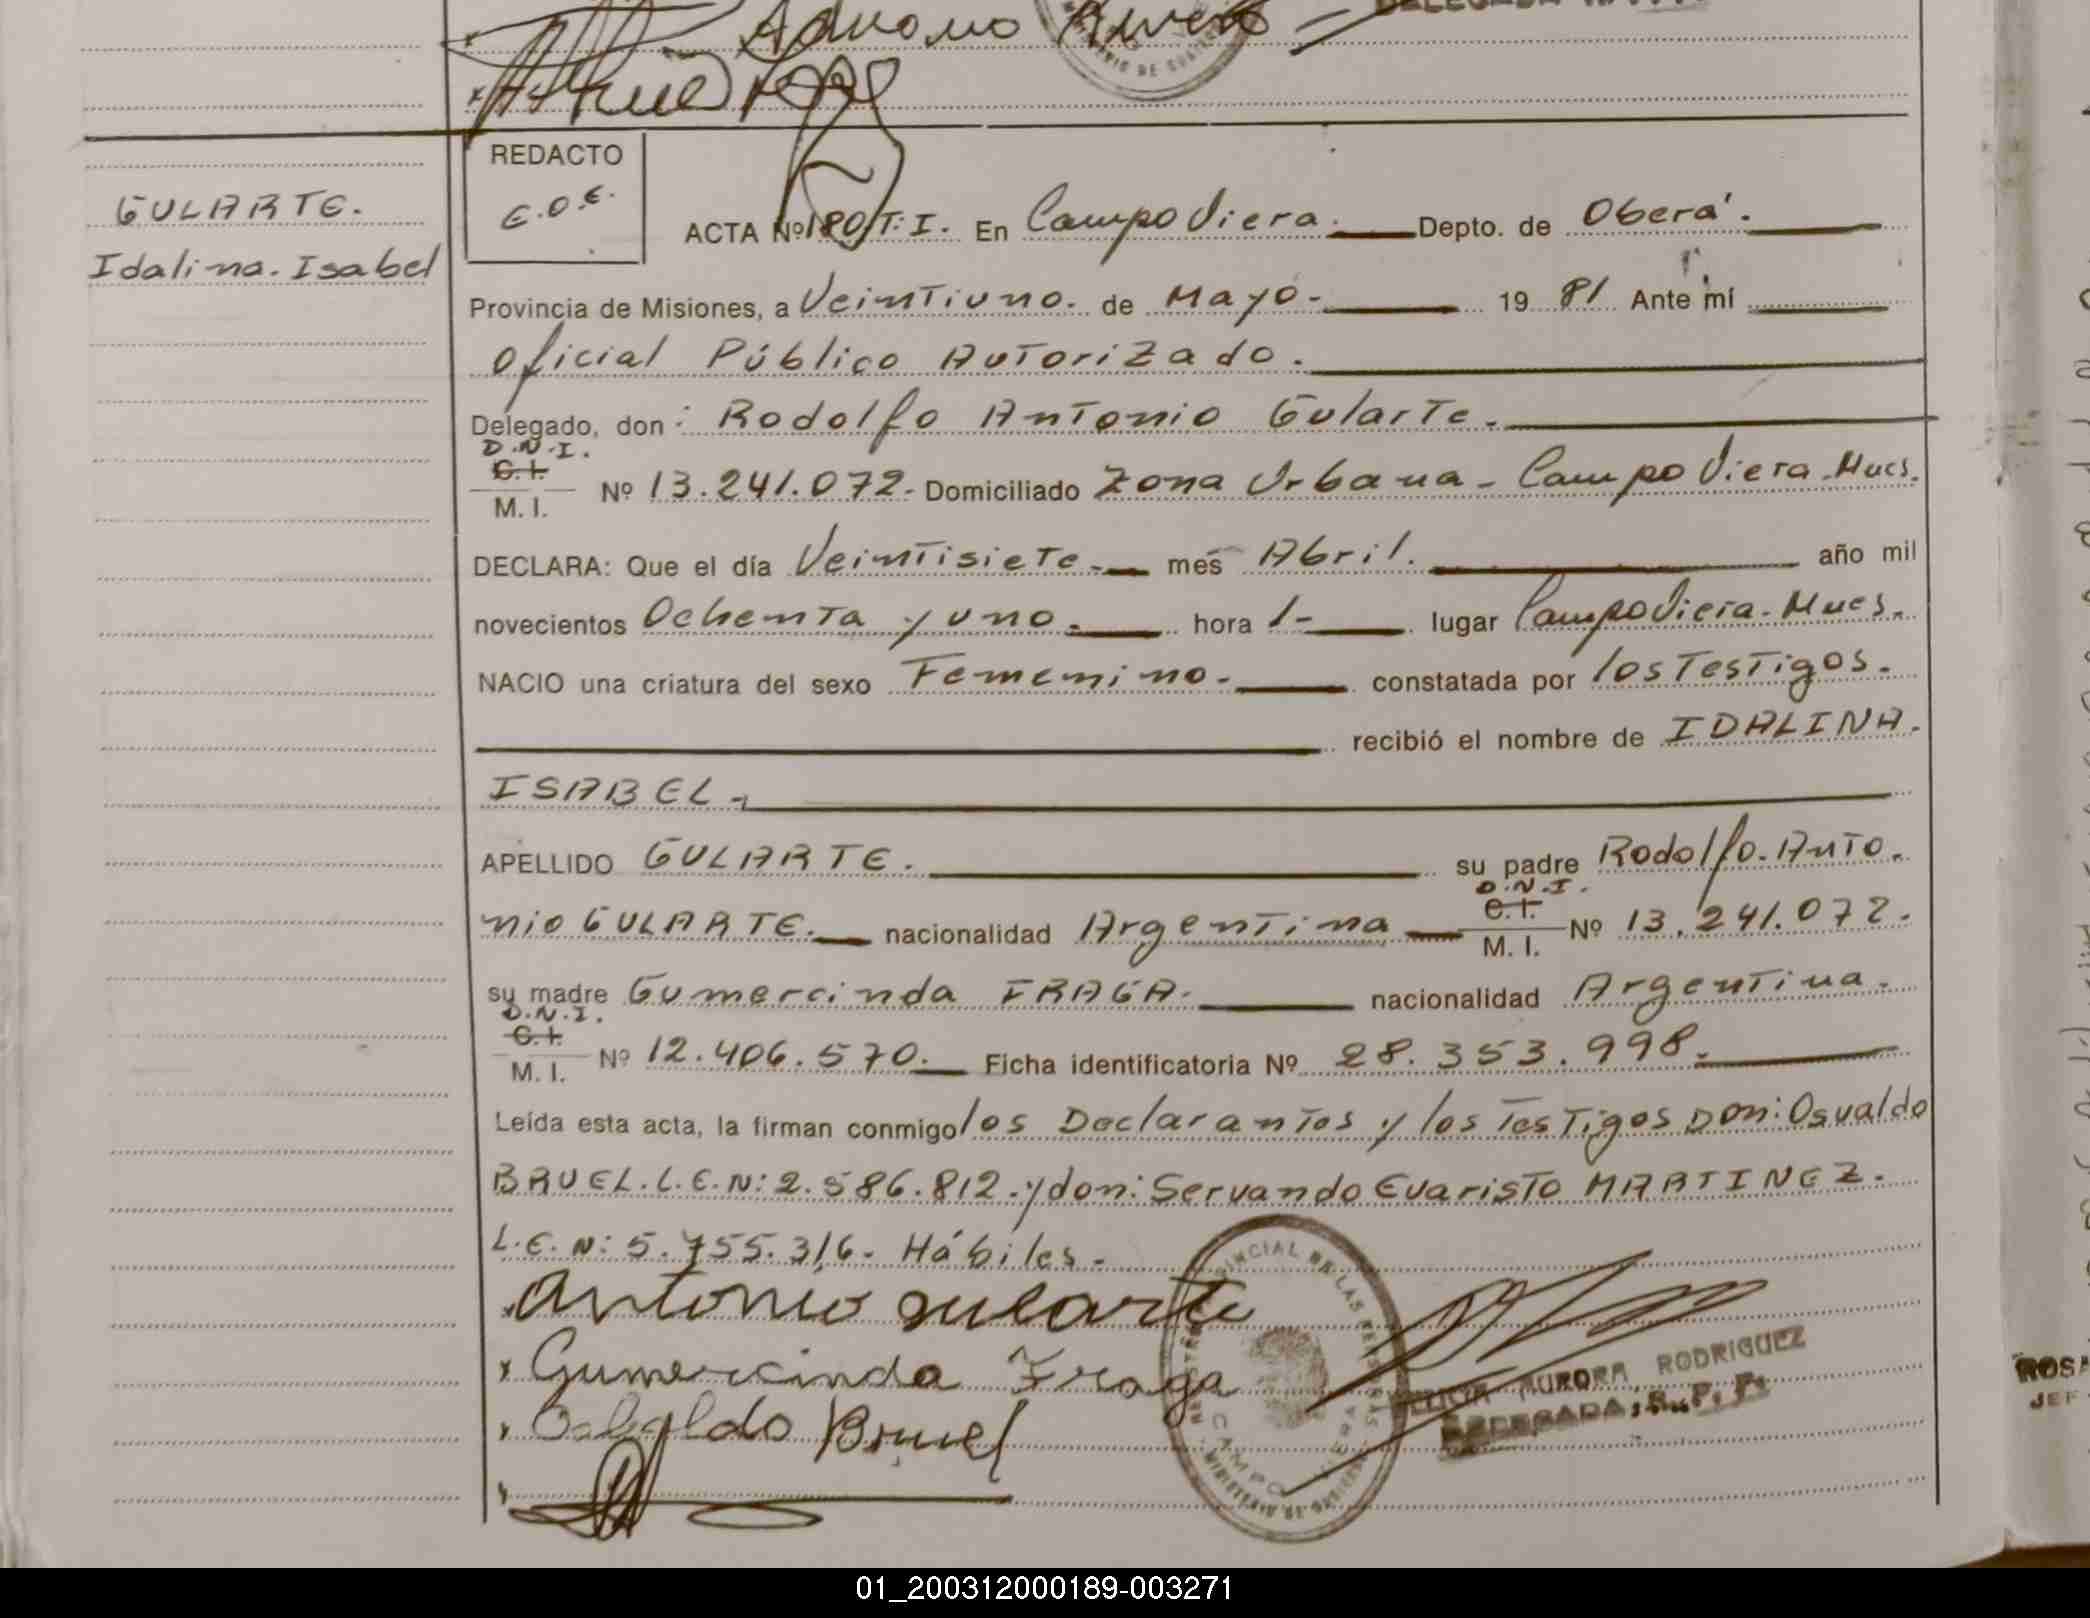 Adriano Rivero
DELEGADA
MINISTERIO DE
REDACTO
E.O.E.
GULARTE.
Idalina. Isabel
ACTA Nº 180/T.I. En Campo Viera. Depto. de Oberá.
Provincia de Misiones, a Veintiuno. de Mayo- 19 81 Ante mí
Oficial Público Autorizado.
Delegado, don: Rodolfo Antonio Gularte.
D.N.I.
C.I.
M. I. Nº 13.241.072.- Domiciliado Zona Urbana - Campo Viera. Mnes.
DECLARA: Que el día Veintisiete. mes Abril. año mil
novecientos Ochenta y uno. hora 1- lugar Campo Viera. Mnes.
NACIO una criatura del sexo Femenino. constatada por los Testigos.
recibió el nombre de IDALINA.
ISABEL.
APELLIDO GULARTE. su padre Rodolfo. Anto
nio GULARTE. nacionalidad Argentina D.N.I. C.I. M. I. Nº 13.241.072.
su madre Gumercinda FRAGA. nacionalidad Argentina.
D.N.I.
C.I.
M. I. Nº 12.406.570. Ficha identificatoria Nº 28.353.998.
Leída esta acta, la firman conmigo los Declarantes y los Testigos Don: Osvaldo
BRUEL. L.E.N: 2.586.812. y don: Servando Evaristo MARTINEZ.
L.E.N: 5.755.316. Hábiles.
Antonio Gularte
Gumercinda Fraga
Osbaldo Bruel
PROVINCIAL DE LAS PERSONAS
CAMPO VIERA
MINISTERIO DE GOBIERNO
AURORA RODRIGUEZ
DELEGADA R. P. P.
ROSA
JEF
01_200312000189-003271